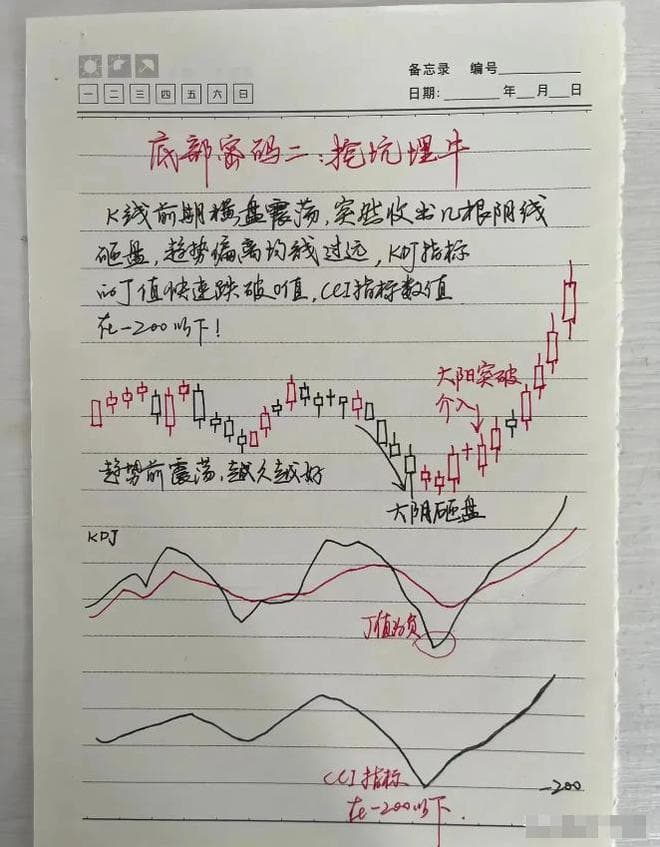 备忘录 编号
一 二 三 四 五 六 日
日期: 年 月 日
底部密码二:挖坑埋牛
K线前期横盘震荡,突然收出几根阴线
砸盘,趋势偏离均线过远,KDJ指标
的J值快速跌破0值,CCI指标数值
在-200以下!
大阳突破
介入
趋势前震荡,越久越好
大阴砸盘
KDJ
J值为负
CCI指标
在-200以下.
-200